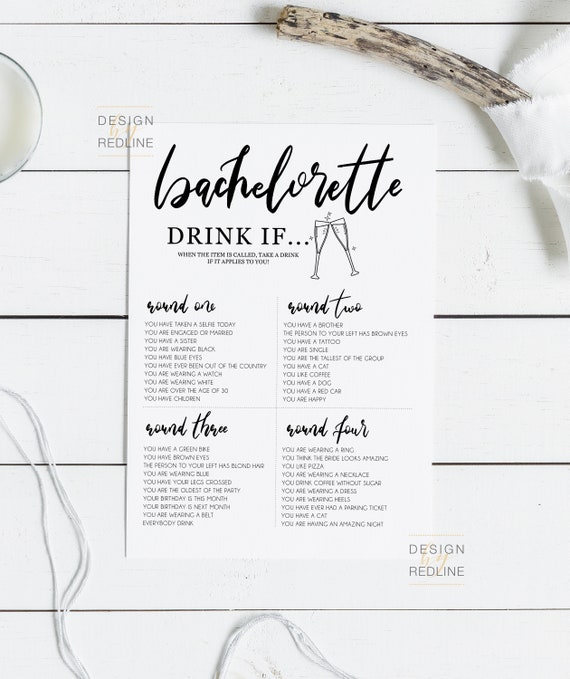 DESIGN
by
REDLINE
bachelorette
DRINK IF...
WHEN THE ITEM IS CALLED, TAKE A DRINK
IF IT APPLIES TO YOU!
round one
YOU HAVE TAKEN A SELFIE TODAY
YOU ARE ENGAGED OR MARRIED
YOU HAVE A SISTER
YOU ARE WEARING BLACK
YOU HAVE BLUE EYES
YOU HAVE EVER BEEN OUT OF THE COUNTRY
YOU ARE WEARING A WATCH
YOU ARE WEARING WHITE
YOU ARE OVER THE AGE OF 30
YOU HAVE CHILDREN
round two
YOU HAVE A BROTHER
THE PERSON TO YOUR LEFT HAS BROWN EYES
YOU HAVE A TATTOO
YOU ARE SINGLE
YOU ARE THE TALLEST OF THE GROUP
YOU HAVE A CAT
YOU LIKE COFFEE
YOU HAVE A DOG
YOU HAVE A RED CAR
YOU ARE HAPPY
round three
YOU HAVE A GREEN BIKE
YOU HAVE BROWN EYES
THE PERSON TO YOUR LEFT HAS BLOND HAIR
YOU ARE WEARING BLUE
YOU HAVE YOUR LEGS CROSSED
YOU ARE THE OLDEST OF THE PARTY
YOUR BIRTHDAY IS THIS MONTH
YOUR BIRTHDAY IS NEXT MONTH
YOU ARE WEARING A BELT
EVERYBODY DRINK
round four
YOU ARE WEARING A RING
YOU THINK THE BRIDE LOOKS AMAZING
YOU LIKE PIZZA
YOU ARE WEARING A NECKLACE
YOU DRINK COFFEE WITHOUT SUGAR
YOU ARE WEARING A DRESS
YOU ARE WEARING HEELS
YOU HAVE EVER HAD A PARKING TICKET
YOU HAVE A CAT
YOU ARE HAVING AN AMAZING NIGHT
DESIGN
by
REDLINE